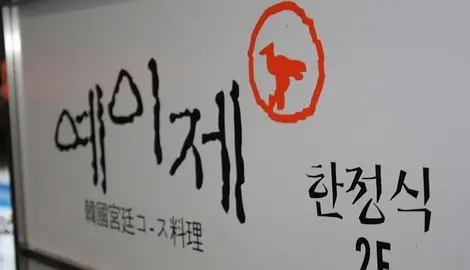 예이제
韓國宮廷コース料理
한정식
2F